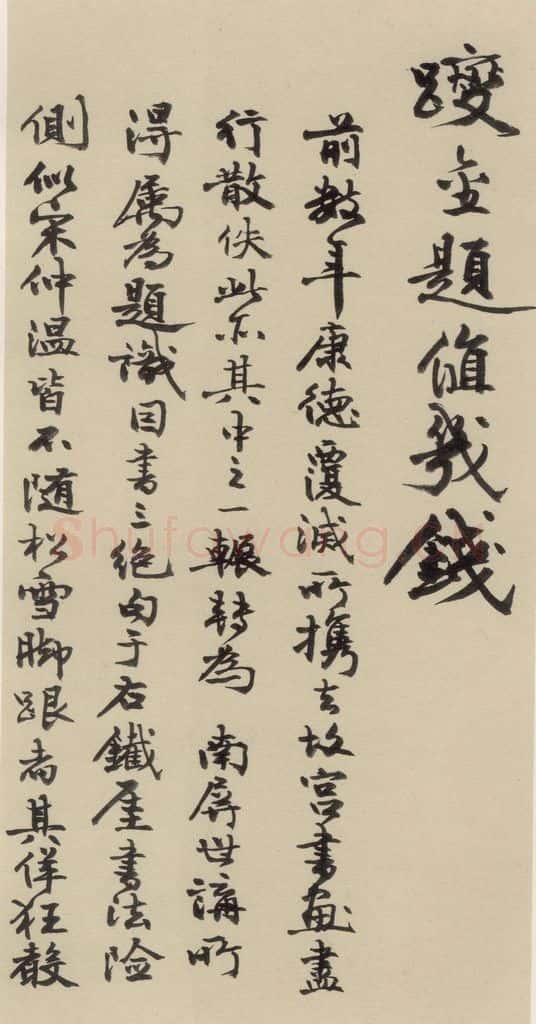 跋金題值幾錢
前數年康德覆滅所携去故宮書畫盡
行散佚此亦其中之一輾轉為 南屏世講所
得属為題識因書三絶句于右鐵厓書法險
側似宋仲温皆不随松雪脚跟者其佯狂
Shufawang.CN